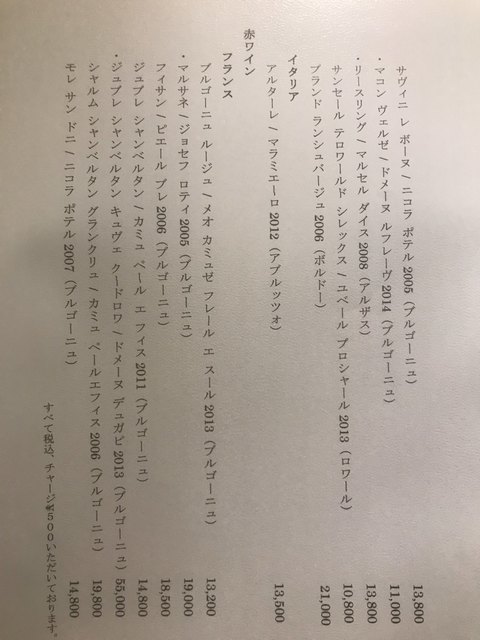 サヴィニ レ ボーヌ / ニコラ ポテル 2005（ブルゴーニュ） 13,800
・マコン ヴェルゼ / ドメーヌ ルフレーヴ 2014（ブルゴーニュ） 11,000
・リースリング / マルセル ダイス 2008（アルザス） 13,800
サンセール テロワールド シレックス / ユベール ブロシャール 2013（ロワール） 10,800
ブランド ランシュバージュ 2006（ボルドー） 21,000
イタリア
アルターレ / マラミエーロ 2012（アブルッツォ） 13,500
赤ワイン
フランス
ブルゴーニュ ルージュ / メオ カミュゼ フレール エ スール 2013（ブルゴーニュ） 13,200
・マルサネ / ジョセフ ロティ 2005（ブルゴーニュ） 19,000
フィサン / ピエール ブレ 2006（ブルゴーニュ） 18,500
ジュブレ シャンベルタン / カミュ ペール エ フィス 2011（ブルゴーニュ） 14,800
・ジュブレ シャンベルタン キュヴェ クードロワ / ドメーヌ デュガピ 2013（ブルゴーニュ） 55,000
シャルム シャンベルタン グランクリュ / カミュ ペールエフィス 2006（ブルゴーニュ） 19,800
モレ サン ドニ / ニコラ ポテル 2007（ブルゴーニュ） 14,800
すべて税込、チャージ¥500いただいております。